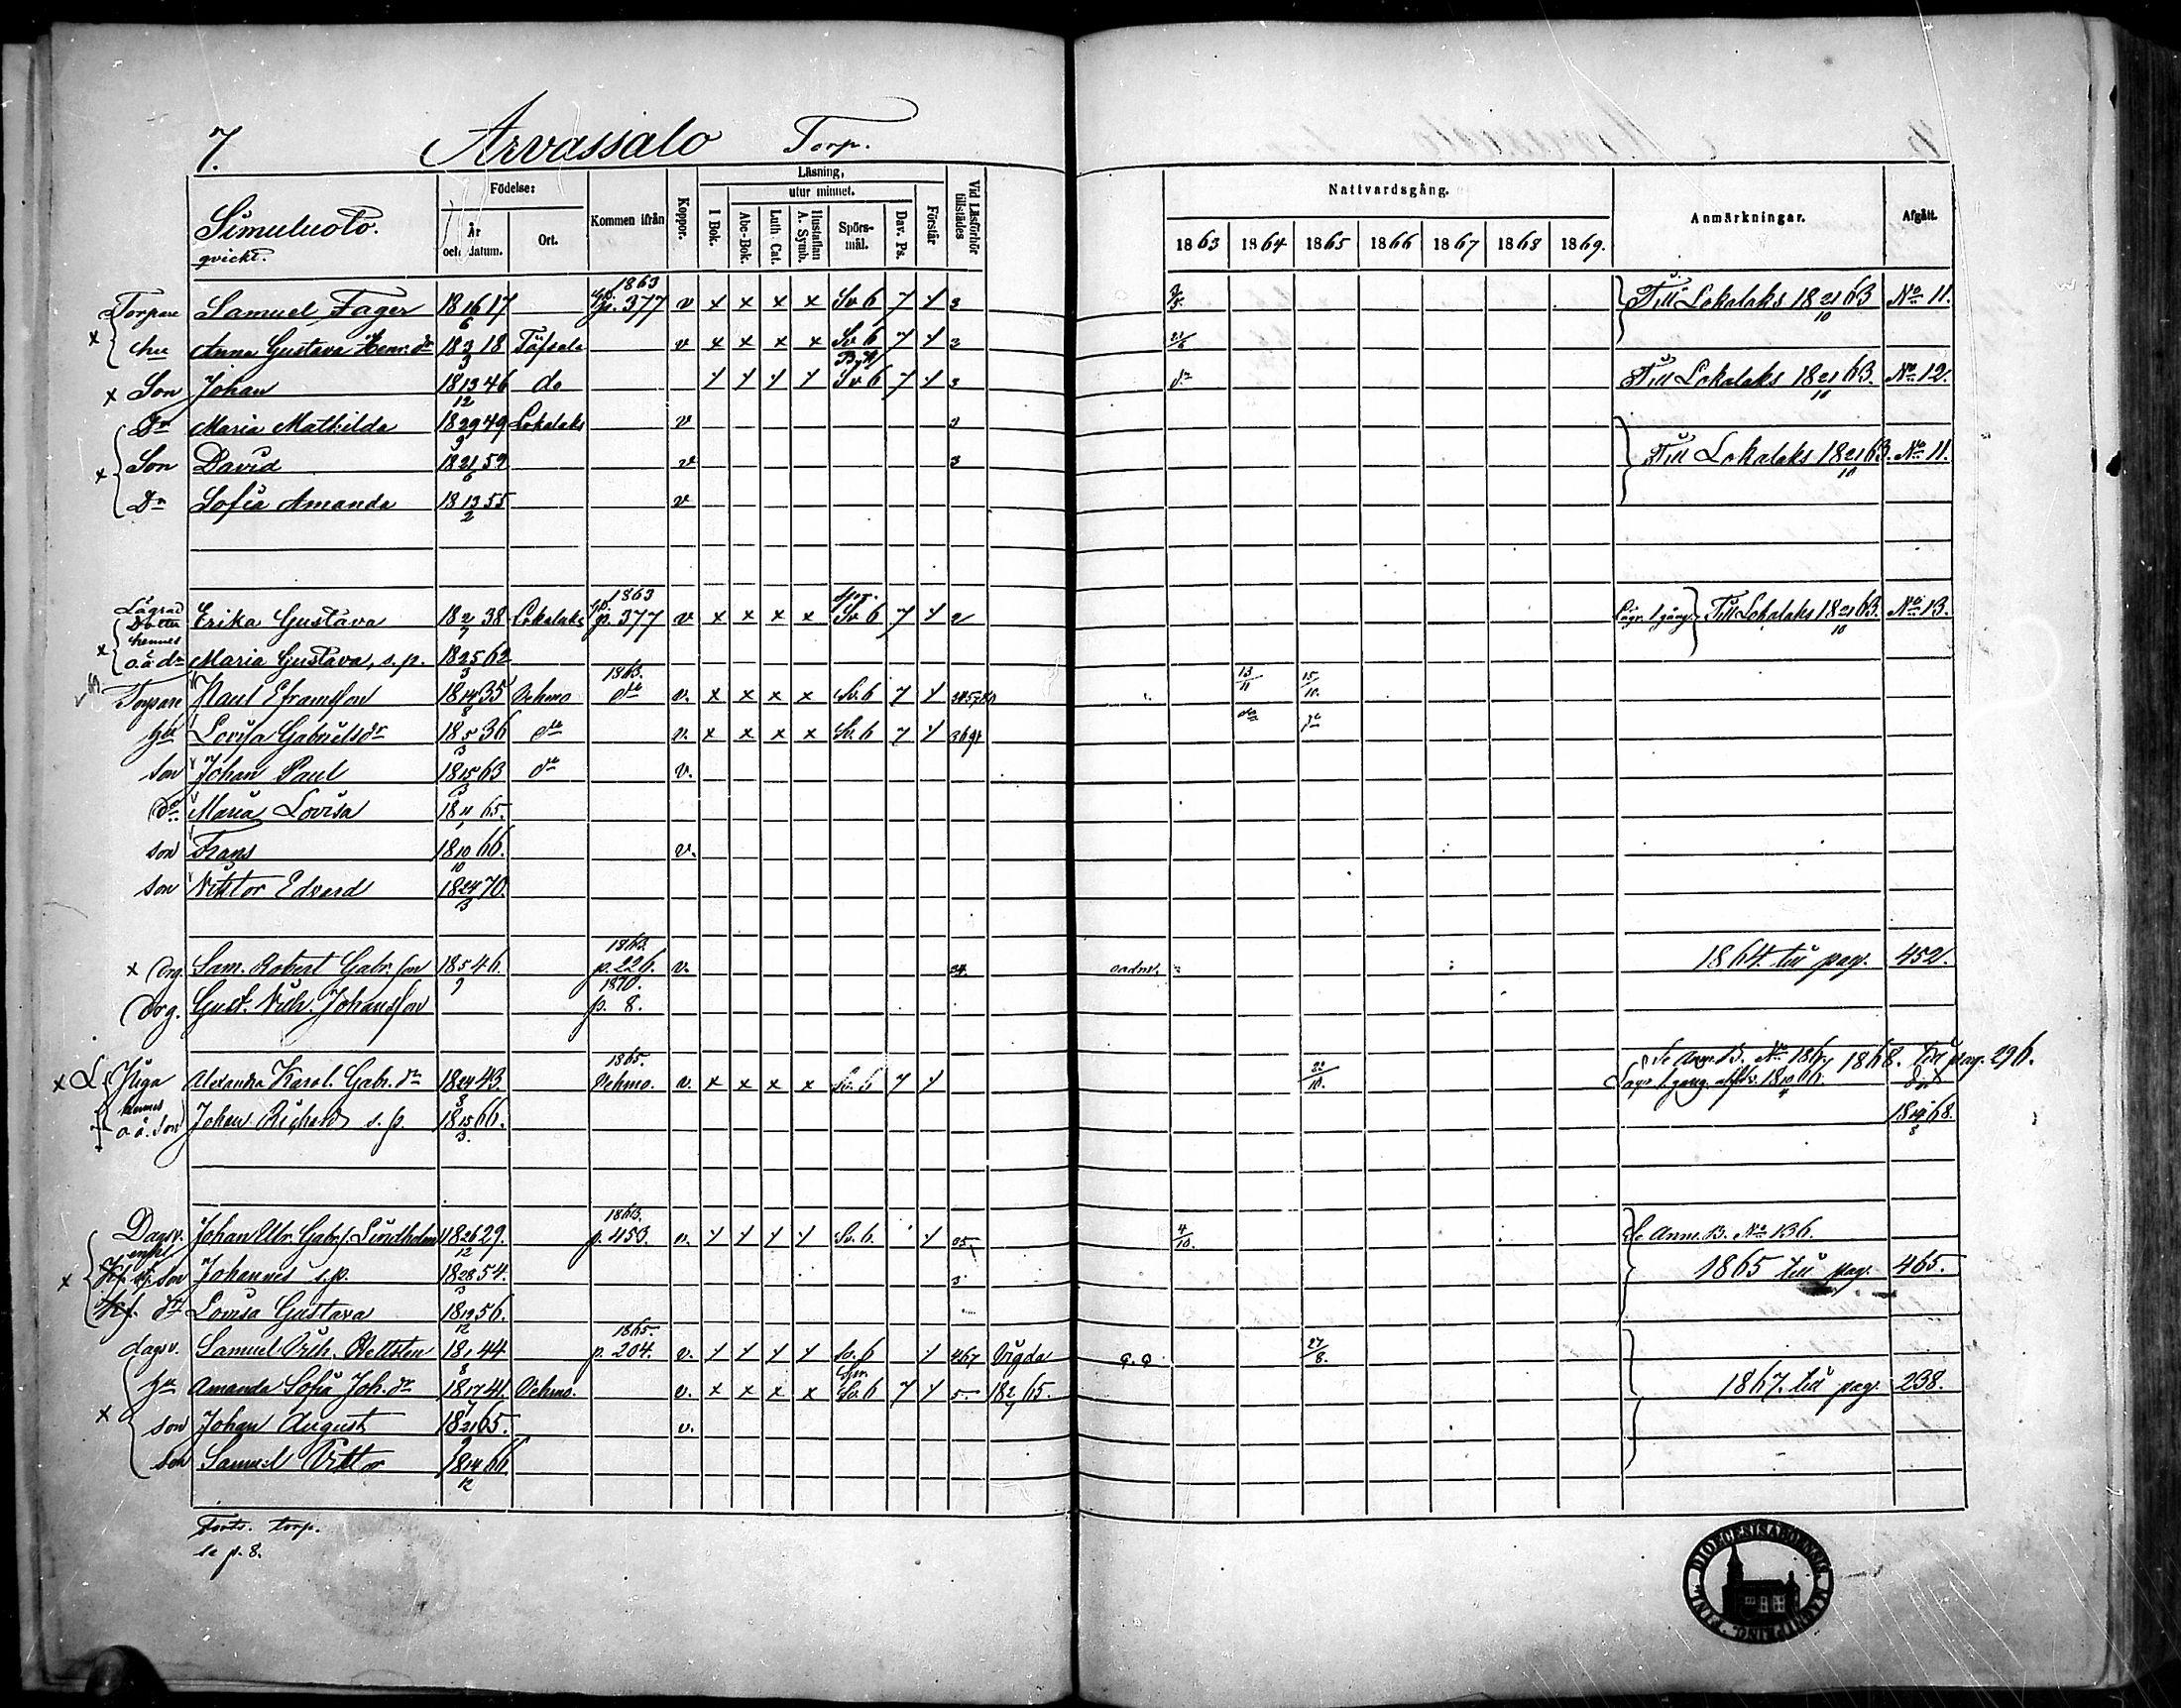 7. Arvassalo Torp.
Simuluoto.
qvickt.
Födelse:
År och datum.
Ort.
Kommen ifrån
Koppor.
Läsning,
utur minnet.
I Bok.
Abc-Bok.
Luth. Cat.
Hustaflan A. Symb.
Spörs-mål.
Dav. Ps.
Förstår
Vid Läsförhör tillstädes
Nattvardsgång.
1863 1864 1865 1866 1867 1868 1869.
Anmärkningar.
Afgått.
Torpare Samuel Fager 18 16/6 17 1863 p. 377 v x x x x Sv 6 7 / 3 Till Lokalaks 18 21/10 63 No 11.
hu Anna Gustava Henr. dr 18 3/3 18 Töfsala v x x x x Sv 6 7 / 3
x Son Johan 18 13/12 46 do / / / / Sv 6 7 / 3 do Till Lokalaks 18 21/10 63. No 12.
Dr Maria Mathilda 18 29/9 49 Lokalaks v 3
x Son David 18 21/6 52 v 3 Till Lokalaks 18 21/10 63. No 11.
Dr Sofia Amanda 18 13/2 55 v
Lägrad Dotter Erika Gustava 18 2/7 38 Lokalaks 1863 p. 377 v x x x x Sv 6 7 / 2 Lägr. 1 gång. Till Lokalaks 18 21/10 63. No 13.
x hennes o.ä. dr Maria Gustava, s.p. 18 25/3 62
Torpare Paul Eframsson 18 14/8 35 Vehmo 1863. do v. x x x x Sv. 6 7 / 13/11 15/10.
hu Lovisa Gabrielsdr 18 5/3 36 do v. x x x x Sv. 6 7 / do do
son Johan Paul 18 15/3 63 do v.
dr Maria Lovisa 18 11/1 65.
son Frans 18 10/10 66. v.
son Viktor Edvard 18 24/3 70.
x Drg. Sam. Robert Gabr. son 18 5/9 46. 1863. p. 226. v. 1864. till pag. 452.
Drg. Gust. Vilh. Johansson 1870. p. 8.
x L. Piga Alexandra Karol. Gabr. dr 18 24/8 43 1865. Vehmo. v. x x x x Sv. 6 7 / 22/10. Se Anm. B. No 186 1868. till pag. 296.
Lägr. 1 gång. 18 10/4 66. död
hennes o.ä. son Johan Richard s.p. 18 15/3 66. 18 14/8 68.
Dagsv. enkl Johan Ulr. Gabr.s. Lindholm 18 26/12 29. 1863. p. 453. v. / / / / Sv. 6. / 4/10. Se Anm. B. No 136.
x son Johannes s.p. 18 28/3 54. 3 1865 till pag. 465.
dr Lovisa Gustava 18 19/12 56.
dagsv. Samuel Vilh. Hellsten 18 1/8 44 1865. p. 204. v. / / / / Sv. 6 / 467 Vigda 27/8.
hu Amanda Sofia Joh. dr 18 17/7 41. Vehmo. v. x x x x Sv. 6 7 / 5 18 2/7 65. 1867. till pag. 238.
x son Johan August 18 21/9 65. v.
son Samuel Viktor 18 14/12 66
Forts. torp.
se p. 8.
DIOECESIS ABOENSIS MAGNI PRINC. FINL.